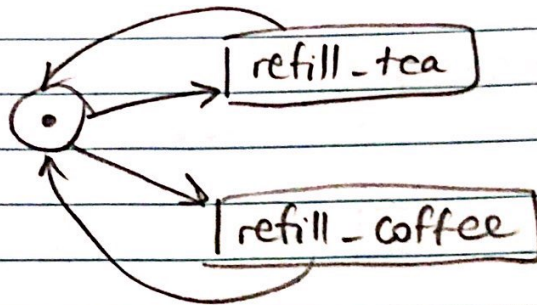 refill_tea
refill_coffee